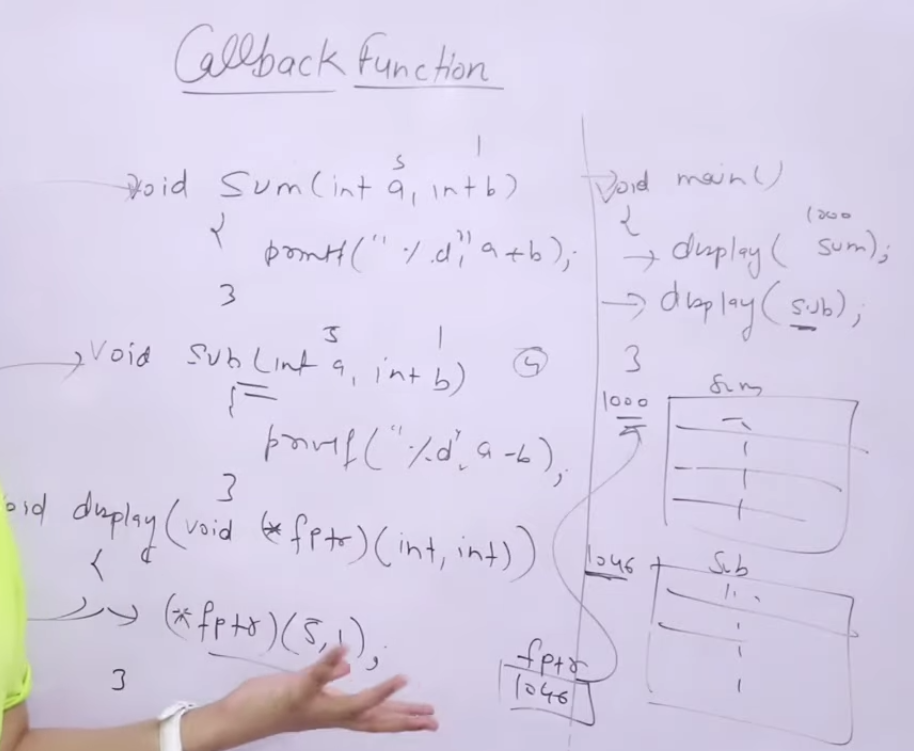 Callback Function
void Sum(int a, int b)
5 1
{
printf("%d", a+b);
}
void Sub(int a, int b)
5 1
4
{
printf("%d", a-b);
}
oid display(void (*fptr)(int, int))
{
(*fptr)(5,1);
}
void main()
{
1000
display( sum);
display(sub);
}
Sum
1000
1046
Sub
fptr
1046